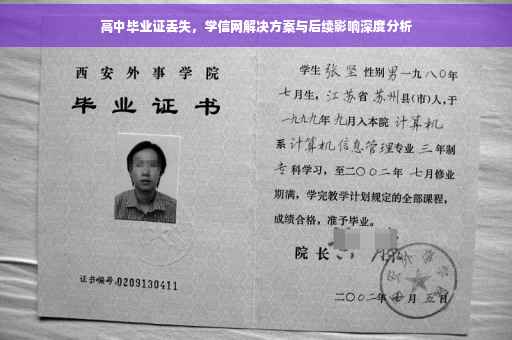 高中毕业证丢失，学信网解决方案与后续影响深度分析
西安外事学院
毕业证书
证书编号:0209130411
学生张坚性别男一九八〇年
七月生，江苏省苏州县(市)人,于
一九九九年九月入本院计算机
系计算机信息管理专业三年制
专科学习，至二〇〇二年七月修业
期满，学完教学计划规定的全部课程，
成绩合格，准予毕业。
院长
二〇〇二年 月五日